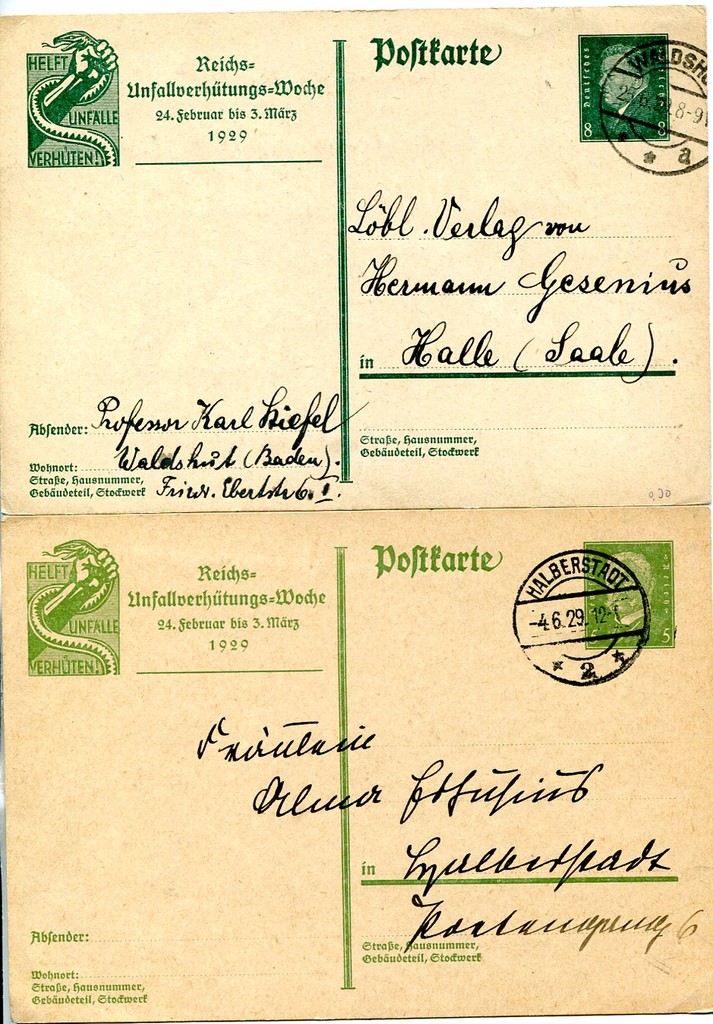 HELFT
UNFÄLLE
VERHÜTEN!
Reichs-
Unfallverhütungs-Woche
24. Februar bis 3. März
1929
Postkarte
Deutsches
8 8
WALDSHU
8-9
* a
Löbl. Verlag von
Hermann Gesenius
in Halle (Saale).
Absender: Professor Karl Kiefel
Wohnort: Waldshut (Baden).
Straße, Hausnummer,
Gebäudeteil, Stockwerk
Friedr. Ebertstr 6. I.
Straße, Hausnummer,
Gebäudeteil, Stockwerk
0,30
HELFT
UNFÄLLE
VERHÜTEN!
Reichs-
Unfallverhütungs-Woche
24. Februar bis 3. März
1929
Postkarte
HALBERSTADT
-4.6.29.12-1
* 2 *
5
Fräulein
Alma
in Halberstadt
6
Absender:
Wohnort:
Straße, Hausnummer,
Gebäudeteil, Stockwerk
Straße, Hausnummer,
Gebäudeteil, Stockwerk